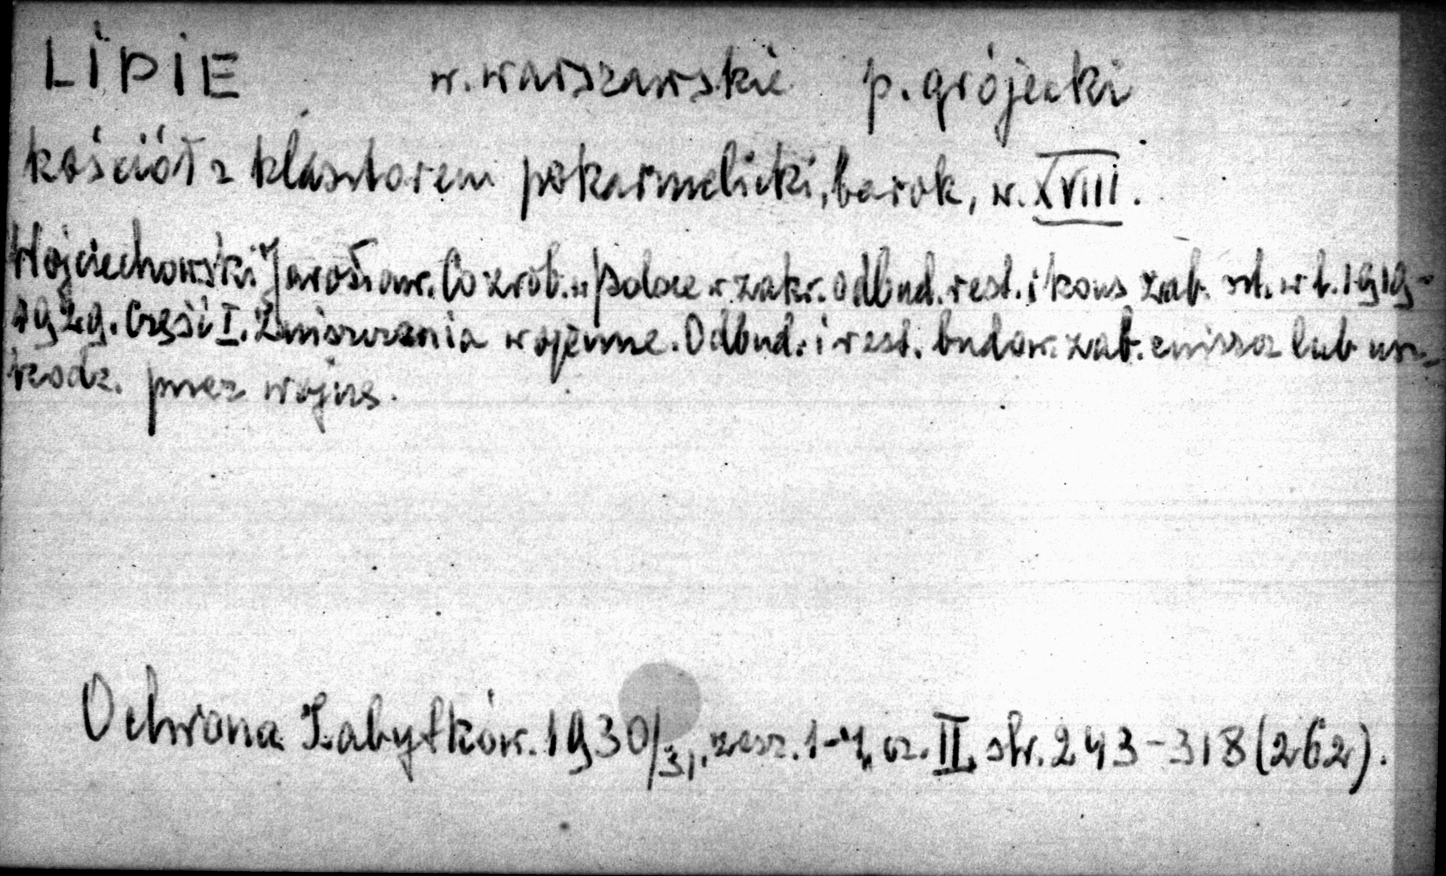 LIPIE w. warszawskie p. grójecki
kościół z klasztorem pokarmelicki, barok, w. XVIII.
Wojciechowski Jarosław. Co zrob. w Polsce w zakr. odbud. rest. i kons. zab. szt. w l. 1919-
1929. Część I. Zniszczenia wojenne. Odbud. i rest. budow. zab. zniszcz lub usz-
kodz. przez wojnę.
Ochrona Zabytków. 1930/31. zesz. 1-4, cz. II, str. 243-318 (262).